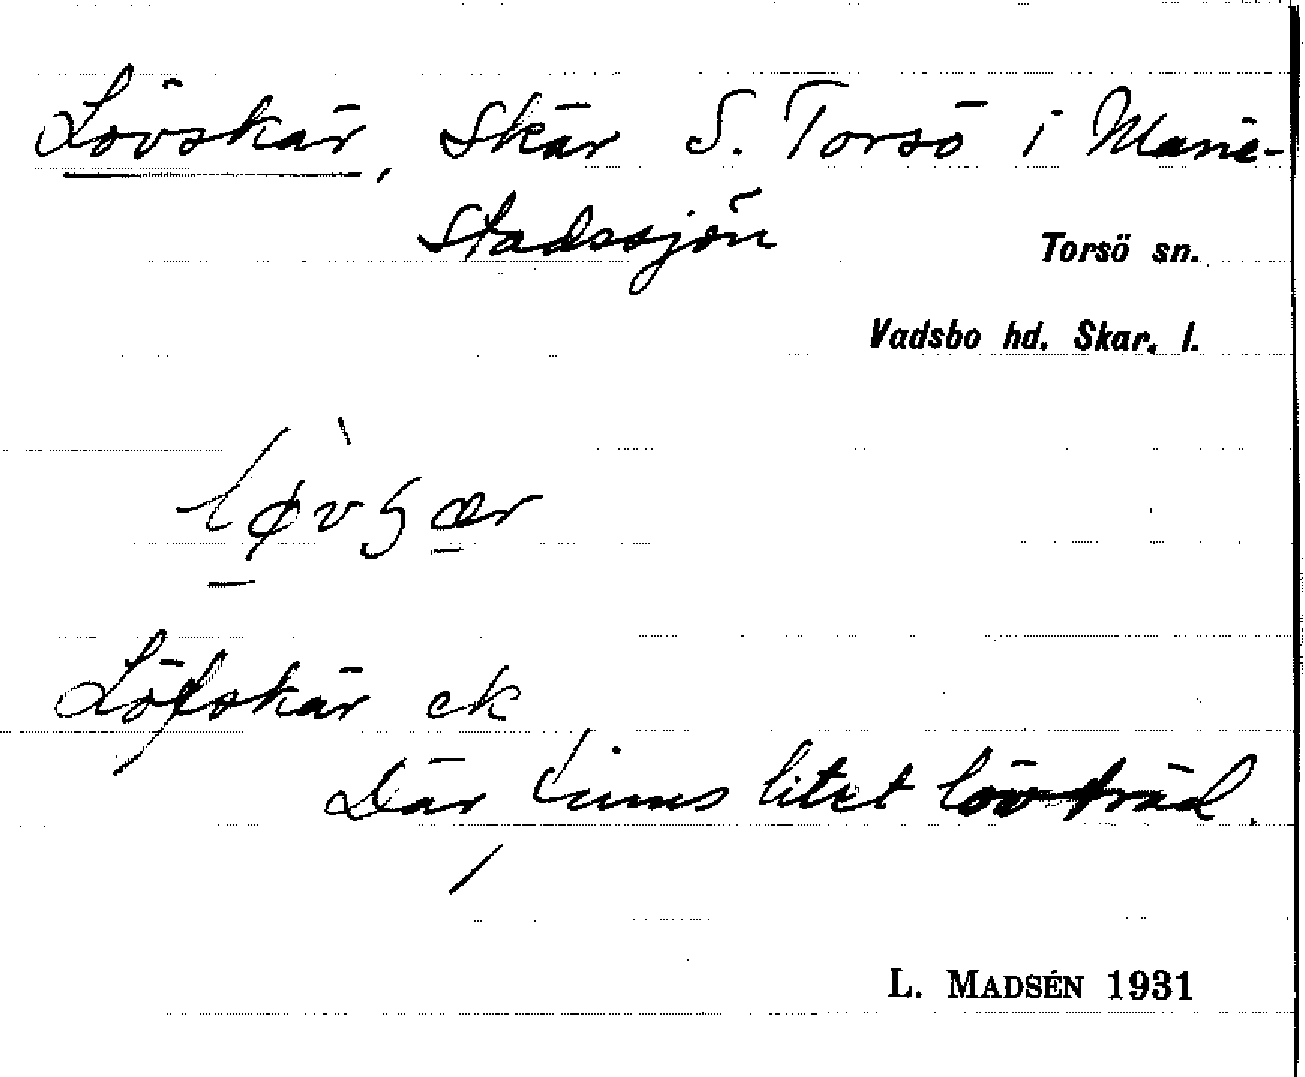 Lövskär, Skär S. Torsö i Marie-
stadssjön
Torsö sn.
Vadsbo hd. Skar. l.
Löfskär ek
Där finns litet lövträd.
L. MADSÉN 1931